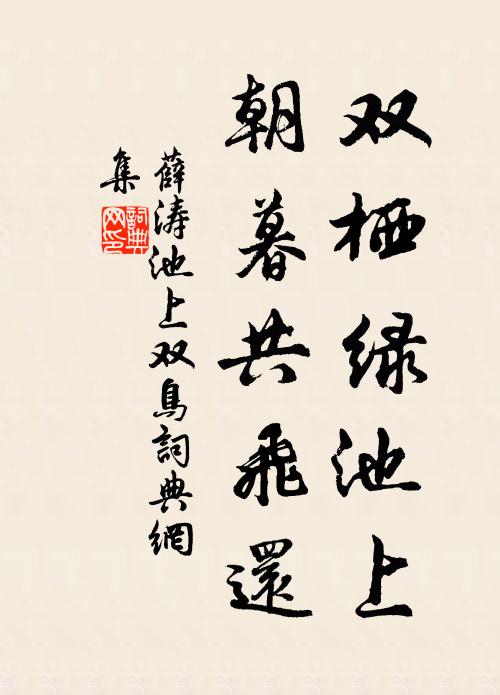 双栖绿池上
朝暮共飛還
薛涛池上双鳥詞典網
集
詞典
网印